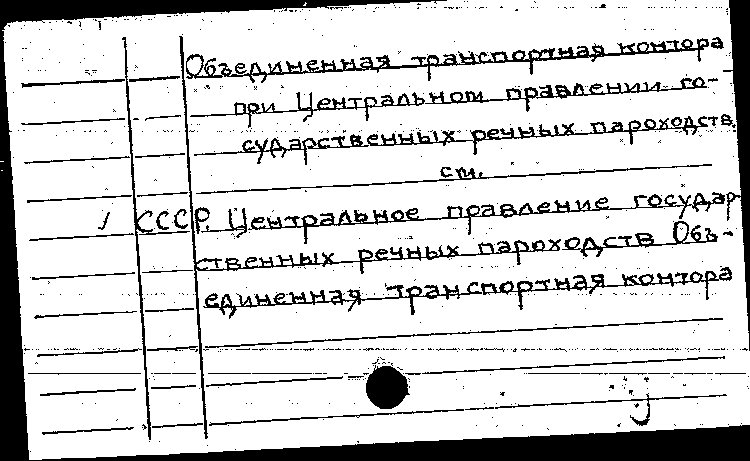 Объединенная транспортная контора
при Центральном правлении го-
сударственных речных пароходств.
см.
СССР. Центральное правление государ-
ственных речных пароходств Объ-
единенная транспортная контора